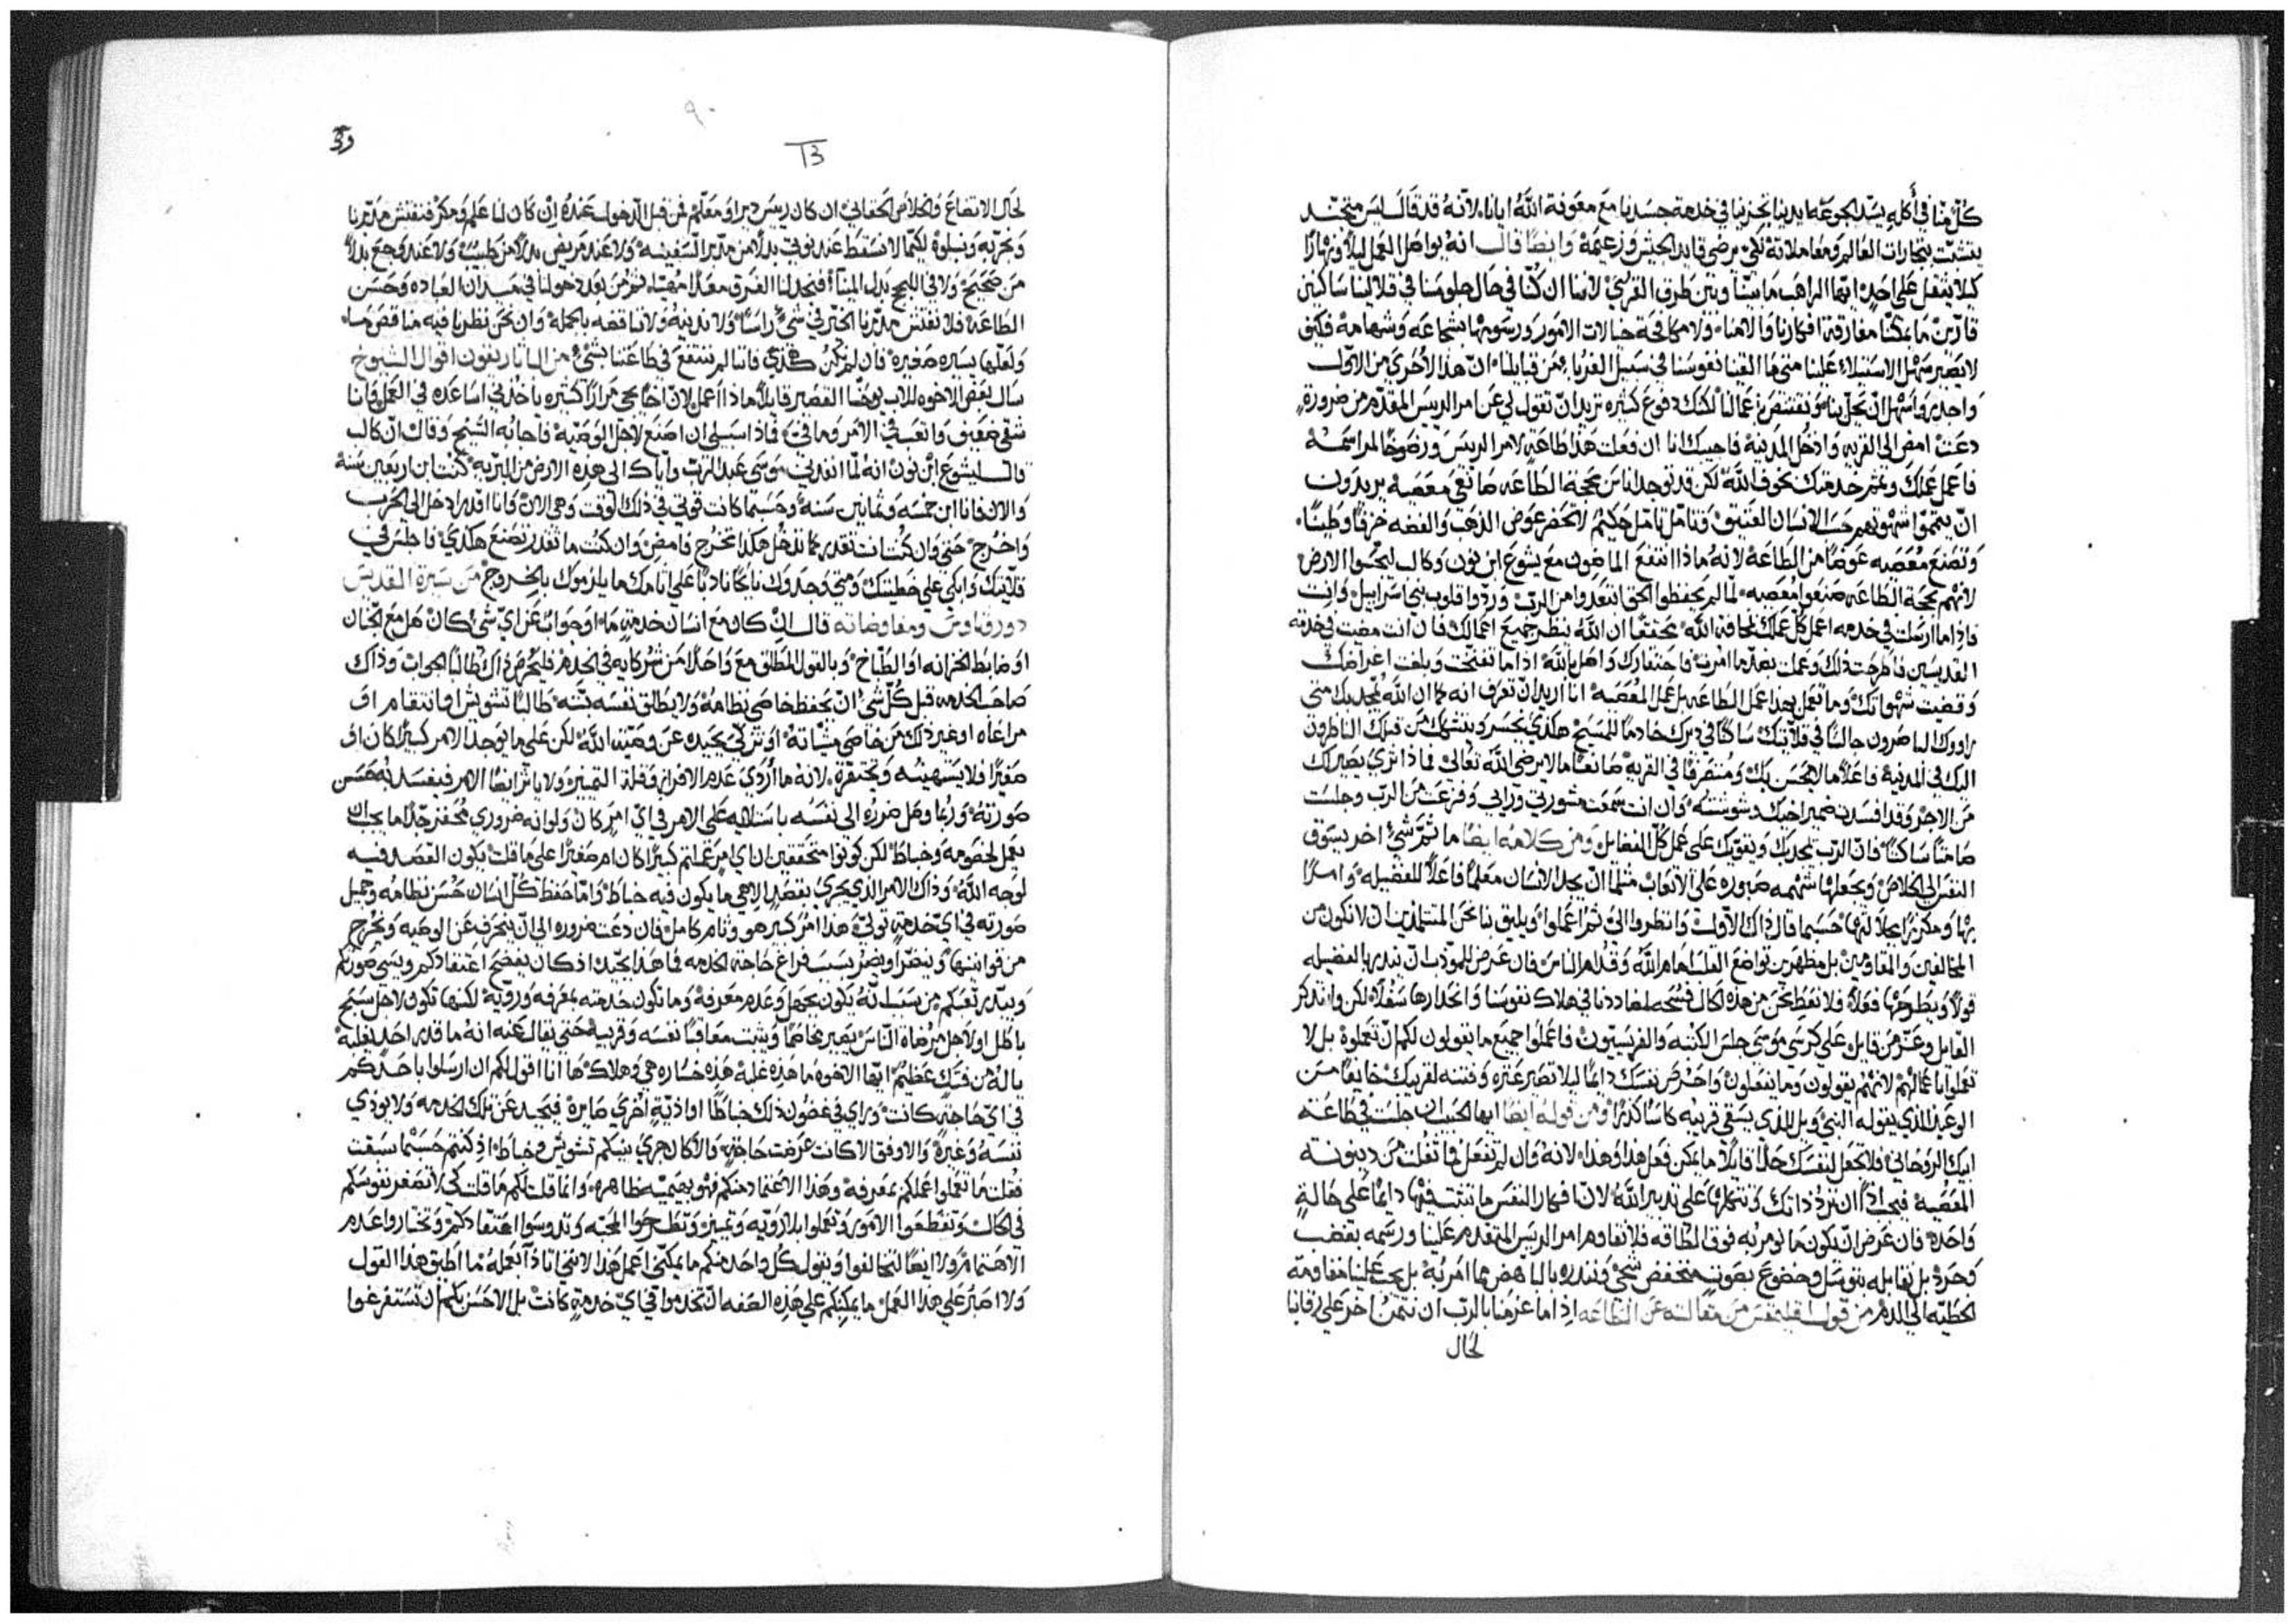 كل منا في أكله يسد الجوعه ايدينا تجزينا في خدمة جسدنا مع معونة الله ايانا لانه قد قال ليس متجند
يتشبث بتجارات العالم ومعاملاته لكي يرضي قايد الجيش وزعيمه وايضًا قال انه يواصل العمل ليلاً ونهارًا
كيلا يثقل على احد ايها الراهب ما بيننا وبين طرق القرى لاننا ان كنا في حال جلوسنا في قلالينا ساكنين
قارين ما يمكنا مفارقة افكارنا والاهنا ولا مكافحة خيالات الامور ورسومها بشجاعه وشهامه فكيف
لا يصير سهل الاستيلاء علينا متى ما القينا نفوسنا في سبيل الغربا من قبايلنا ان هذا الاخرى من الاول
واحدى واسهل ان يحل بنا
دعت امض الى القريه وادخل المدينة فاجيبك انا ان فعلت هذا طاعة لامر الريس ورضوخًا لمراسمه
فاعمل عملك وتمم خدمتك بخوف الله لكن قد توجد اناس بحجة الطاعه معصيه يريدون
ان يتمموا شهوتهم حسب الانسان العتيق فتامل تامل حكيم لا تحضر عوض الذهب والفضه خزفًا وطينًا
وتصنع معصيه عوضًا من الطاعه لانه ماذا انتفع الماضون مع يشوع ابن نون وكالب ليجسوا الارض
لانهم بحجة الطاعه صنعوا معصيه لما لم يحفظوا الحق ابتعدوا من الرب وردوا قلوب بني اسراييل وانت
فاذا ما ارسلت في خدمه اعمل كل عملك لمخافة الله متحققًا ان الله ينظر جميع اعمالك فان انت مضيت في خدمة
القديسين فاطرحت ذلك وعملت بضد ما امرت فاحتقارك واصل بالله اذا ما تفتحت وبلغت اغراضك
وقضيت شهواتك وما تعمل بهذا عمل الطاعه بل عمل المعصيه انا اريد ان تعرف انه كما ان الله يمجدك متى
راووك الحاضرون جالسًا في قلايتك ساكنًا في ديرك خادمًا للمسيح هكذي يخسر ويتشكك من قبلك الناظرون
اليك في المدينة فاعلاً ما لا يحسن بك ومتصرفًا في القريه صانعًا ما لا يرضي الله تعالى فماذا ترى يصير لك
من الاجر وقد افسدت ضمير اخيك وشوشته وان انت سمعت مشورتي ورايي وفزعت من الرب وجلست
صامتًا ساكنًا فان الرب يمجدك ويقويك على عمل كل الفضايل ومن كلامه ايضًا ما ثم شيء اخر يسوق
النفس الى الخلاص ويجعلها شهمه صبوره على الاتعاب مثلما ان يجد الانسان معلمًا فاعلاً للفضيله وامرًا
بها ومكرزًا حسبما قال ذاك الاول وانظروا اليّ ثم اعملوا ويليق بنا نحن المتتلمذين ان لا نكون من
المخالفين والمقاومين بل مظهرين تواضع القلب امام الله وقدام الناس فان عرض للمؤدب ان يندبها الفضيله
قولاً ويطرحها فعلاً فلا نغط نحن من هذه الحال فسحه في هلاك نفوسنا وانحدارها سفلاً لكن وانتذكر
القايل وعز من قايل على كرسي موسى جلس الكتبه والفريسيون فاعملوا جميع ما يقولون لكم ان تعملوه بل لا
تعملوا باعمالهم لانهم يقولون وما يفعلون واحترص نفسك دايمًا ليلا تصير عثره وفتنه لقريبك خايفًا من
الوعيد الذي يقوله النبي ويل للذي يسقي قريبه كاسًا كدرًا ومن قوله ايضًا ايها الحبيب ان جلست في طاعة
ابيك الروحاني فلا تجعل لنفسك حدًا قايلاً ما يمكن فعل هذا وهذا لانه وان لم تفعل فما تفلت من دينونه
المعصيه فيجب اذًا ان ترد ذاتك وتتكلها على تدبير الله لان افكار النفس ما تثبت فيها دايمًا على حالة
واحده فان عرض ان تكون ما تومر به فوق الطاقه فلا نقاوم امر الريس المتقدم علينا ورسمه بغضب
وحرد بل نقابله بتوسل وخضوع بصوت منخفض شجي ونبدره بالناهض بما امر به بل يجب علينا مقاومة
الخطيه الى الدم من قول من مقالته عن الطاعه اذا ما عزمنا بالرب ان نتمن اخر على رقابنا
لحال
٩٠
39
13
لحال الاتضاع والخلاص الحقاني ان كان ريس دير او معلم فمن قبل الدخول عنده ان كان لنا علم ومكر فنفتش مدبرنا
ونجربه ونبلوه لكيما لا نسقط عند نوتي بدلاً من مدبر السفينه ولا عند مريض بدلاً من طبيب ولا عند وجع بدلاً
من صحيح ولا في اللجج بدل المينا فنجد لنا الغرق معدًا مهيًا ثم من بعد دخولنا في ميدان العباده وحسن
الطاعه فلا نفتش مدبرنا الخير في شيء راسًا ولا ندينه ولا نناقضه بالجمله وان نحن نظرنا فيه مناقص ما
ولعلها يسيره صغيره فان لم يكن هكذي فاننا لم ننتفع في طاعتنا بشيء من الثاريفون اقوال الشيوخ
سال بعض الاخوه للاب يوحنا القصير قايلاً ماذا اعمل لان اخًا يجي مرارًا كثيره ياخذني اساعده في العمل وانا
شقي ضعيف واتعب في الامر وما في فماذا سبيلي ان اصنع لاجل الوصيه فاجابه الشيخ وقال ان كالب
قال ليشوع ابن نون انه لما انفذني موسى عبد الرب واياك الى هذه الارض من البريه كنت ابن اربعين سنة
والان فانا ابن خمسه وثمانين سنه وحسبما كانت قوتي في ذلك الوقت وهي الان وانا اقدر ادخل الى الحرب
واخرج حتى وان كنت انت تقدر كما تدخل هكذا تخرج فامض وان كنت ما تقدر تصنع هكذي فاجلس في
قلايتك وابكي على خطيتك ومتى وجدوك باكيًا نادبًا على اثامك ما يلزموك بالخروج من سيرة القديس
دورثاوس ومفاوضاته قال ان كان مع انسان خدمة ما او جواب عن اي شيء كان هل مع الجنان
او ضابط الخزانه او الطباخ وبالقول المطلق مع واحد من شركايه في الخدم فليحرص ذاك طالبًا الجواب وذاك
صاحب الخدمه قبل كل شيء ان يحفظ خاصي نظامه ولا يطلق نفسه بته طالبًا تشويش او انتقام او
مراعاه او غير ذلك من خاصي مشيّاته او تزكي بحيده عن وصية الله لكن على ما يوجد الامر كبيرًا كان او
صغيرًا فلا يستهينه ويحتقره لانه ما اردي عدم الافراز وقلة التمييز ولا ياثر ايضًا الامر فيفسد به حسن
صورته وربما وصل ضرره الى نفسه باستلايه على الامر في اي امر كان ولو انه ضروري محفز جدًا ما يجب ان
يعمل بخصومه وخباط لكن كونوا متحققين ان اي امر عملتم كبيرًا كان ام صغيرًا على ما قلت يكون القصد فيه
لوجه الله وذاك الامر الذي يجري بقصد الاهي ما يكون فيه خباط واما حفظ كل انسان حسن نظامه وجميل
صورته في اي خدمة تولي هذا امر كبير هو وثام كامل فان دعت ضروره الى ان ينحرف عن الوصيه ويخرج
من قوانينها ويتضرر او يضر بسبب فراغ حاجة الخدمه فما هذا بجيد اذ كان يفضح اعتقادكم ويسي صورتكم
ويبدد تعبكم من سبب انه يكون بجهل وعدم معرفة وما تكون خدمته بمعرفه ورويه لكنها تكون لاجل سبح
باطل او لاجل مرضاة الناس يصير مخاصمًا ويثبت معاقبًا نفسه وقريبه حتى يقال عنه انه ما قدر احد يغلبه
يا له من فتك عظيم ايها الاخوه ما هذه غلبه هذه خساره هي وهلاك ها انا اقول لكم ان ارسلوا باحدكم
في اي حاجة كانت وراي في غضون ذلك خباطًا او اذية اخرى صايرة فيحيد عن تلك الخدمه ولا يوذي
نفسه وغيره والاوفق الا كانت عرضت حاجة والا كان جرى بينكم تشويش وخباط اذ كنتم حسبما سبقت
فقلت ما تعملوا عملكم بمعرفه وهذا الاعتماد منكم فهو بهيميه ظاهره وانما قلت لكم ما قلت لكي لا تصغر نفوسكم
في الحال وتقطعوا الامور وتعملوا بلا رويه وتمييز وتطرحوا المحبه وتدوسوا اعتقادكم وتختاروا عدم
الاهتمام ولا ايضًا لتخالفوا ويقول كل واحد منكم ما يمكنني اعمل هذا لانني اتاذا بعمله ما اطيق هذا القول
ولا اصبر على هذا العمل ما يمكنكم على هذه الصفه ان تخدموا في اي خدمة كانت بل الاحسن بكم ان تستفرغوا